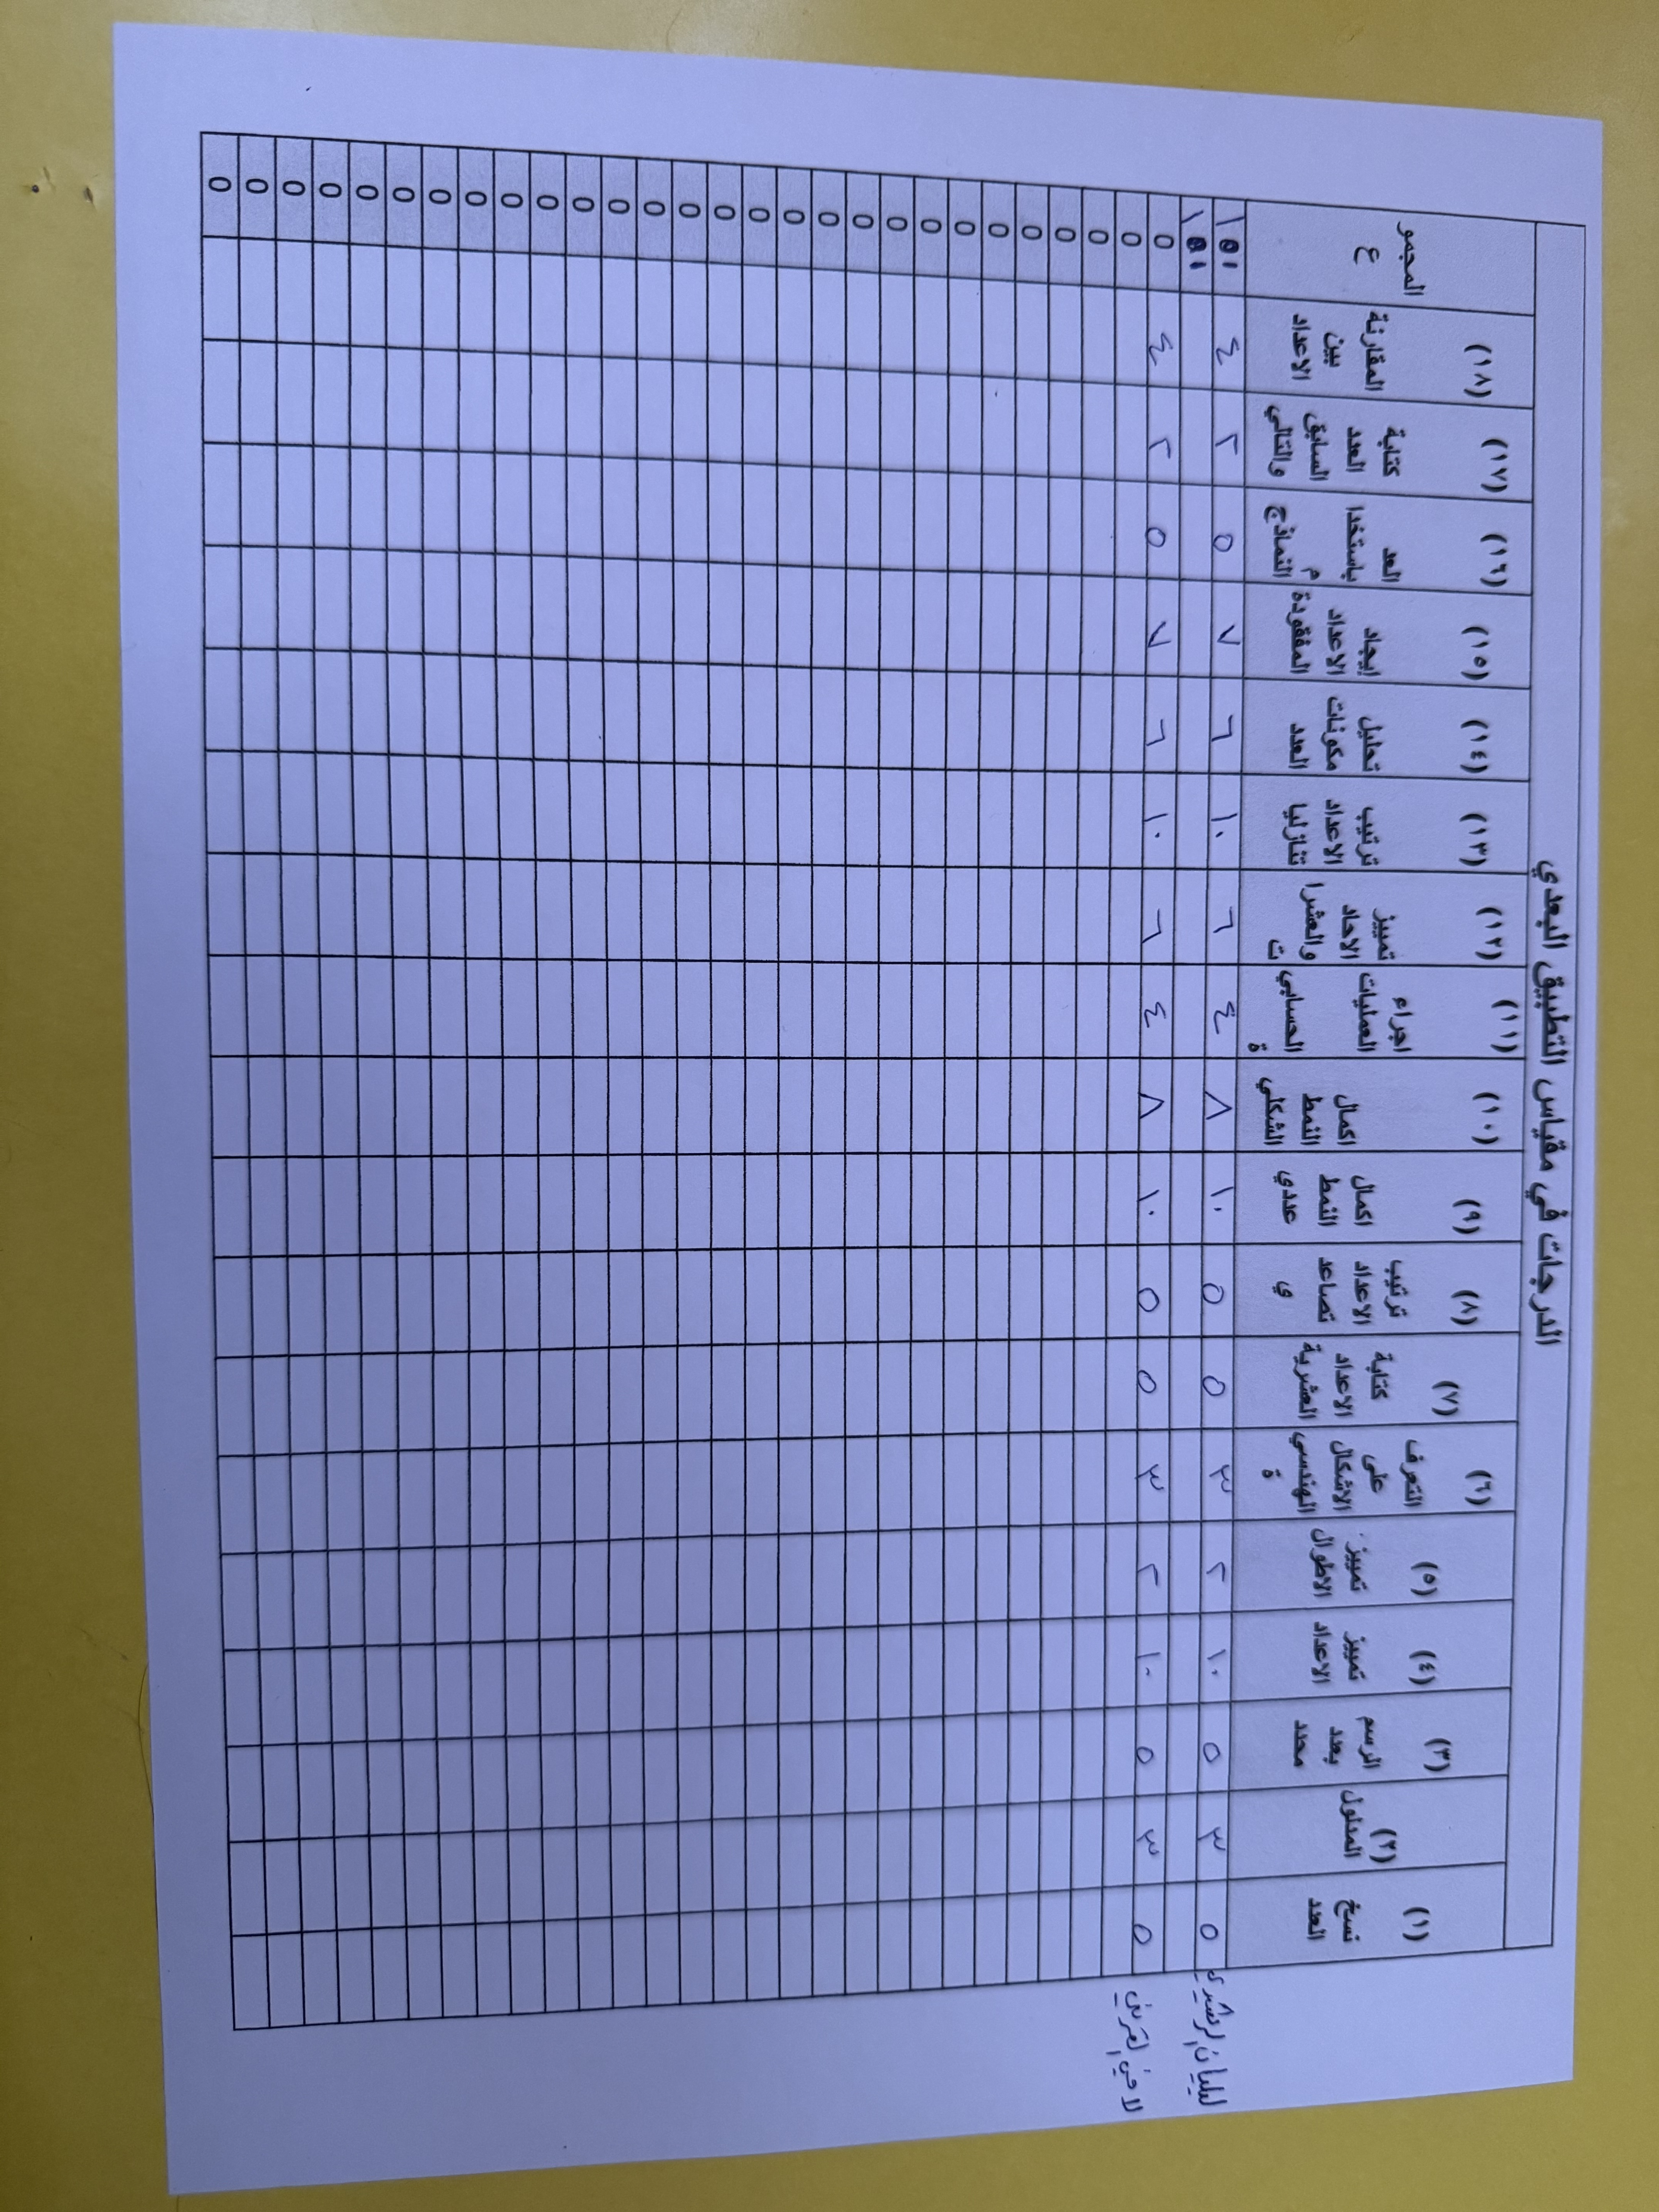 الدرجات في مقياس التطبيق البعدي
(١) نسخ العدد
(٢) المدلول
(٣) الرسم بعدد محدد
(٤) تمييز الاعداد
(٥) تمييز الاطوال
(٦) التعرف على الاشكال الهندسية
(٧) كتابة الاعداد العشرية
(٨) ترتيب الاعداد تصاعدي
(٩) اكمال النمط عددي
(١٠) اكمال النمط الشكلي
(١١) اجراء العمليات الحسابية
(١٢) تمييز الاحاد والعشرات
(١٣) ترتيب الاعداد تنازليا
(١٤) تحليل مكونات العدد
(١٥) إيجاد الاعداد المفقودة
(١٦) العد باستخدام النماذج
(١٧) كتابة العدد السابق والتالي
(١٨) المقارنة بين الاعداد
المجموع
ليليان الرشيدي ٥ ٣ ٥ ١٠ ٢ ٣ ٥ ٥ ١٠ ٨ ٤ ٦ ١٠ ٦ ٧ ٥ ٢ ٤
القرني ٥ ٣ ٥ ١٠ ٢ ٣ ٥ ٥ ١٠ ٨ ٤ ٦ ١٠ ٦ ٧ ٥ ٢ ٤
0
0
0
0
0
0
0
0
0
0
0
0
0
0
0
0
0
0
0
0
0
0
0
0
0
0
0
0